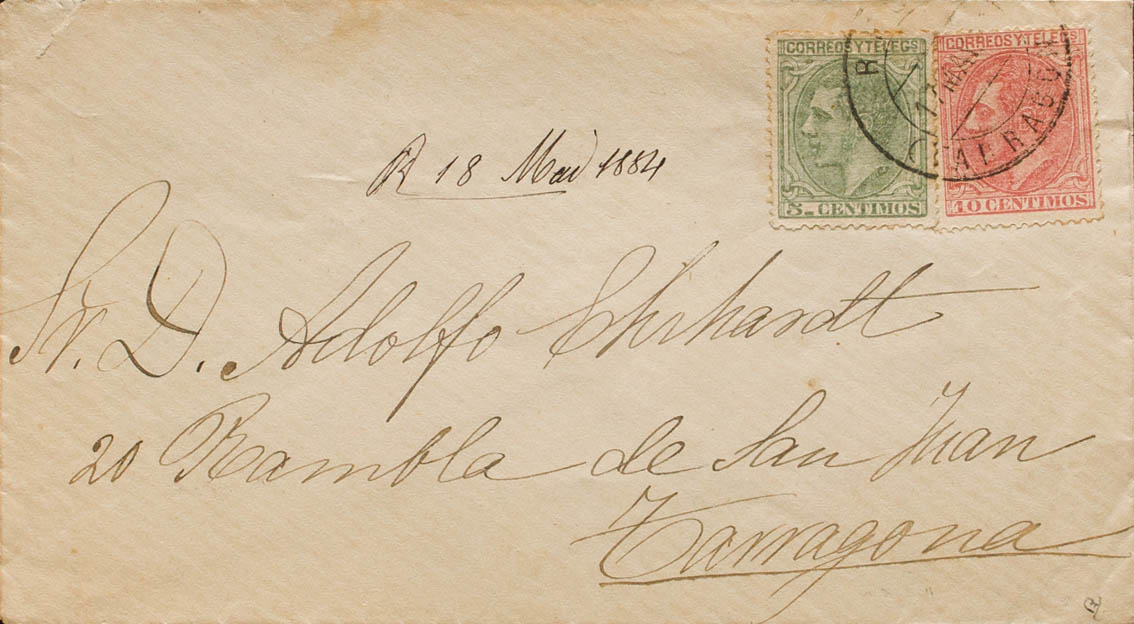 CORREOS Y TELEGS
5 CENTIMOS
CORREOS Y TELEGS
10 CENTIMOS
17 MAY
R 18 Mai 1884
Sr. D. Adolfo Ehrhardt
20 Rambla de San Juan
Tarragona